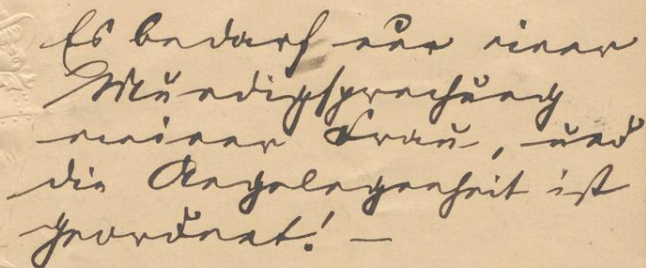 Es bedarf nur einer
Mündigsprechung
meiner Frau, und
die Angelegenheit ist
geordnet! —